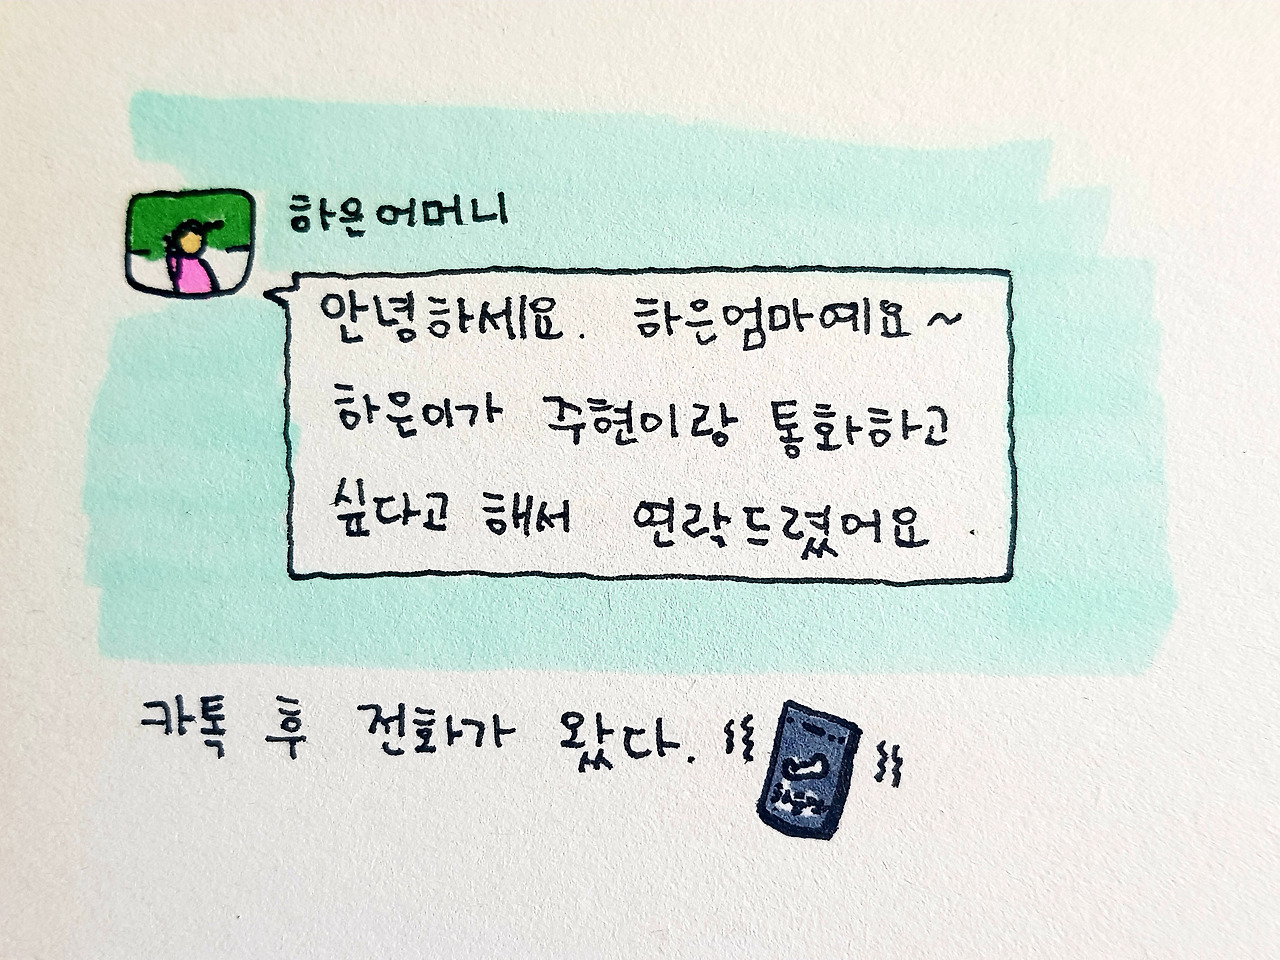 하은어머니
안녕하세요. 하은엄마예요~
하은이가 주현이랑 통화하고
싶다고 해서 연락드렸어요.
카톡 후 전화가 왔다.